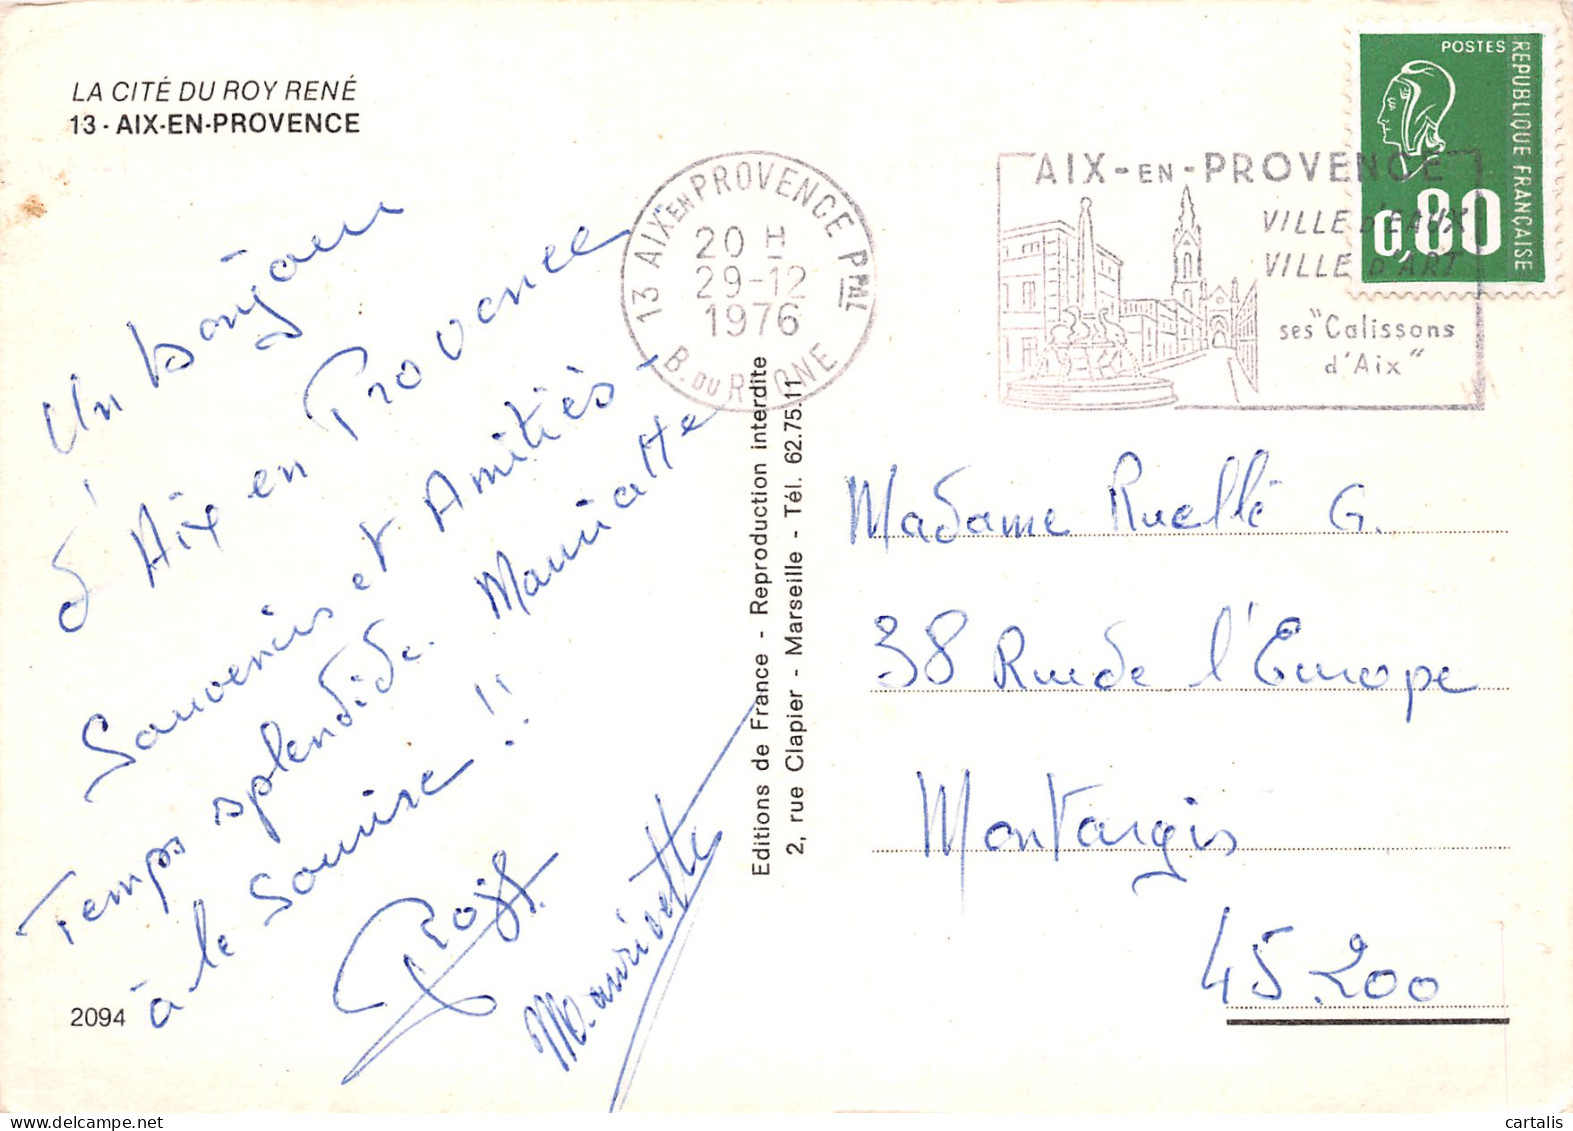 LA CITÉ DU ROY RENÉ
13 - AIX-EN-PROVENCE
Un bonjour
d'Aix en Provence
Souvenirs et Amitiés -
Temps splendide. Mauriatte
à le sourire !!
Maurivette
2094
Editions de France - Reproduction interdite
2, rue Clapier - Marseille - Tél. 62.75.11
13 AIX EN PROVENCE PPAL
20 H
29-12
1976
B. DU RHONE
AIX-EN-PROVENCE
VILLE d'EAUX
VILLE D'ART
ses "Calissons
d'Aix"
POSTES
REPUBLIQUE FRANÇAISE
0,80
Madame Ruellé G.
38 Rue de l'Europe
Montargis
45.200
cartalis